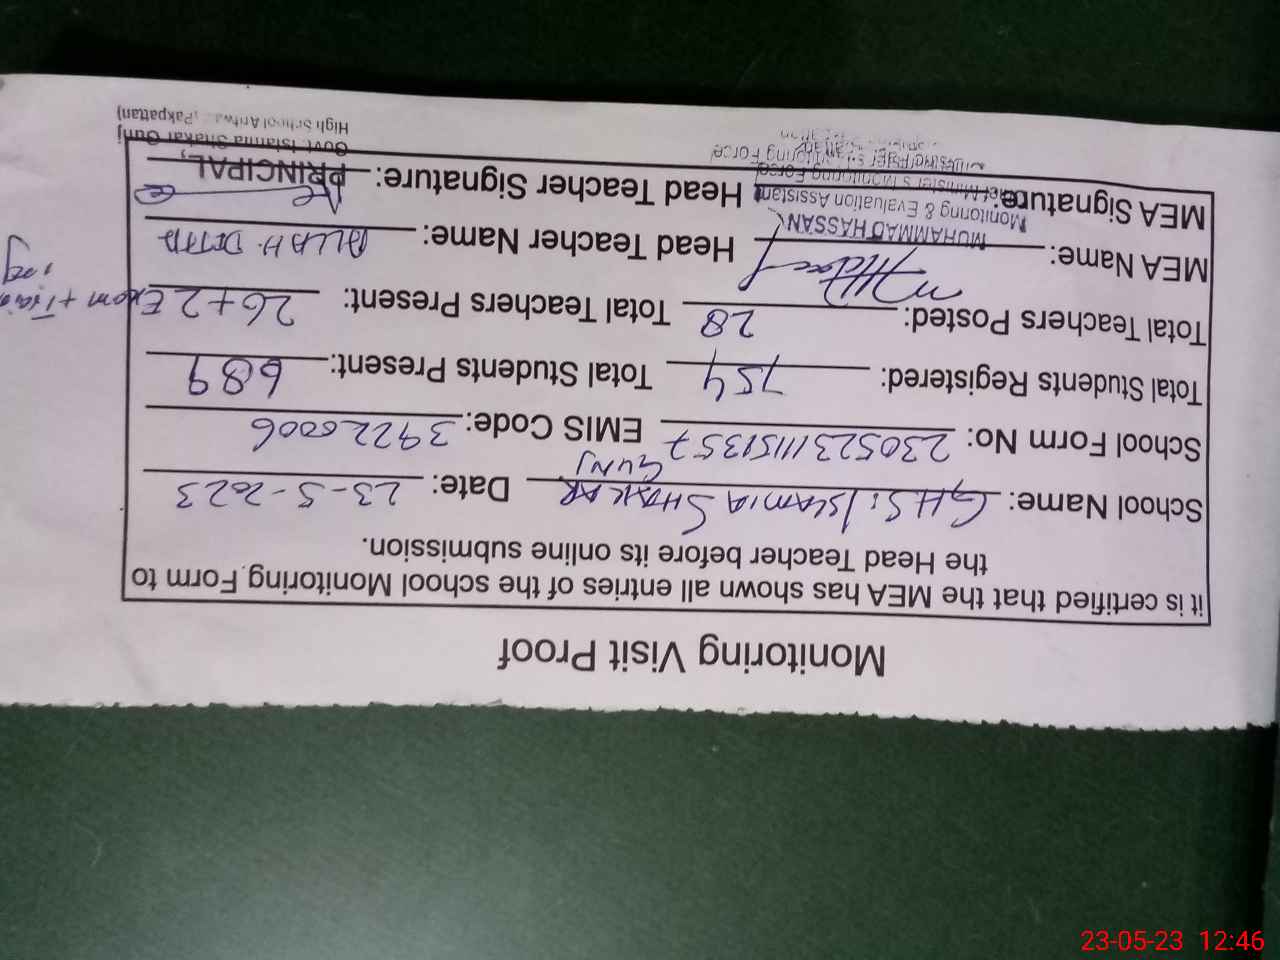 Monitoring Visit Proof
it is certified that the MEA has shown all entries of the school Monitoring Form to
the Head Teacher before its online submission.
School Name: G.H.S. Islamia Shakar Gunj Date: 23-5-2023
School Form No: 23052311151357 EMIS Code: 39220006
Total Students Registered: 754 Total Students Present: 689
Total Teachers Posted: 28 Total Teachers Present: 26+2 Exam + Training
MEA Name: MUHAMMAD HASSAN Head Teacher Name: ALLAH DITTA
Monitoring & Evaluation Assistant
MEA Signature: Chief Minister's Monitoring Force Head Teacher Signature: PRINCIPAL,
Monitoring Force
Govt. Islamia Shakar Gunj
High School Pakpattan)
23-05-23 12:46